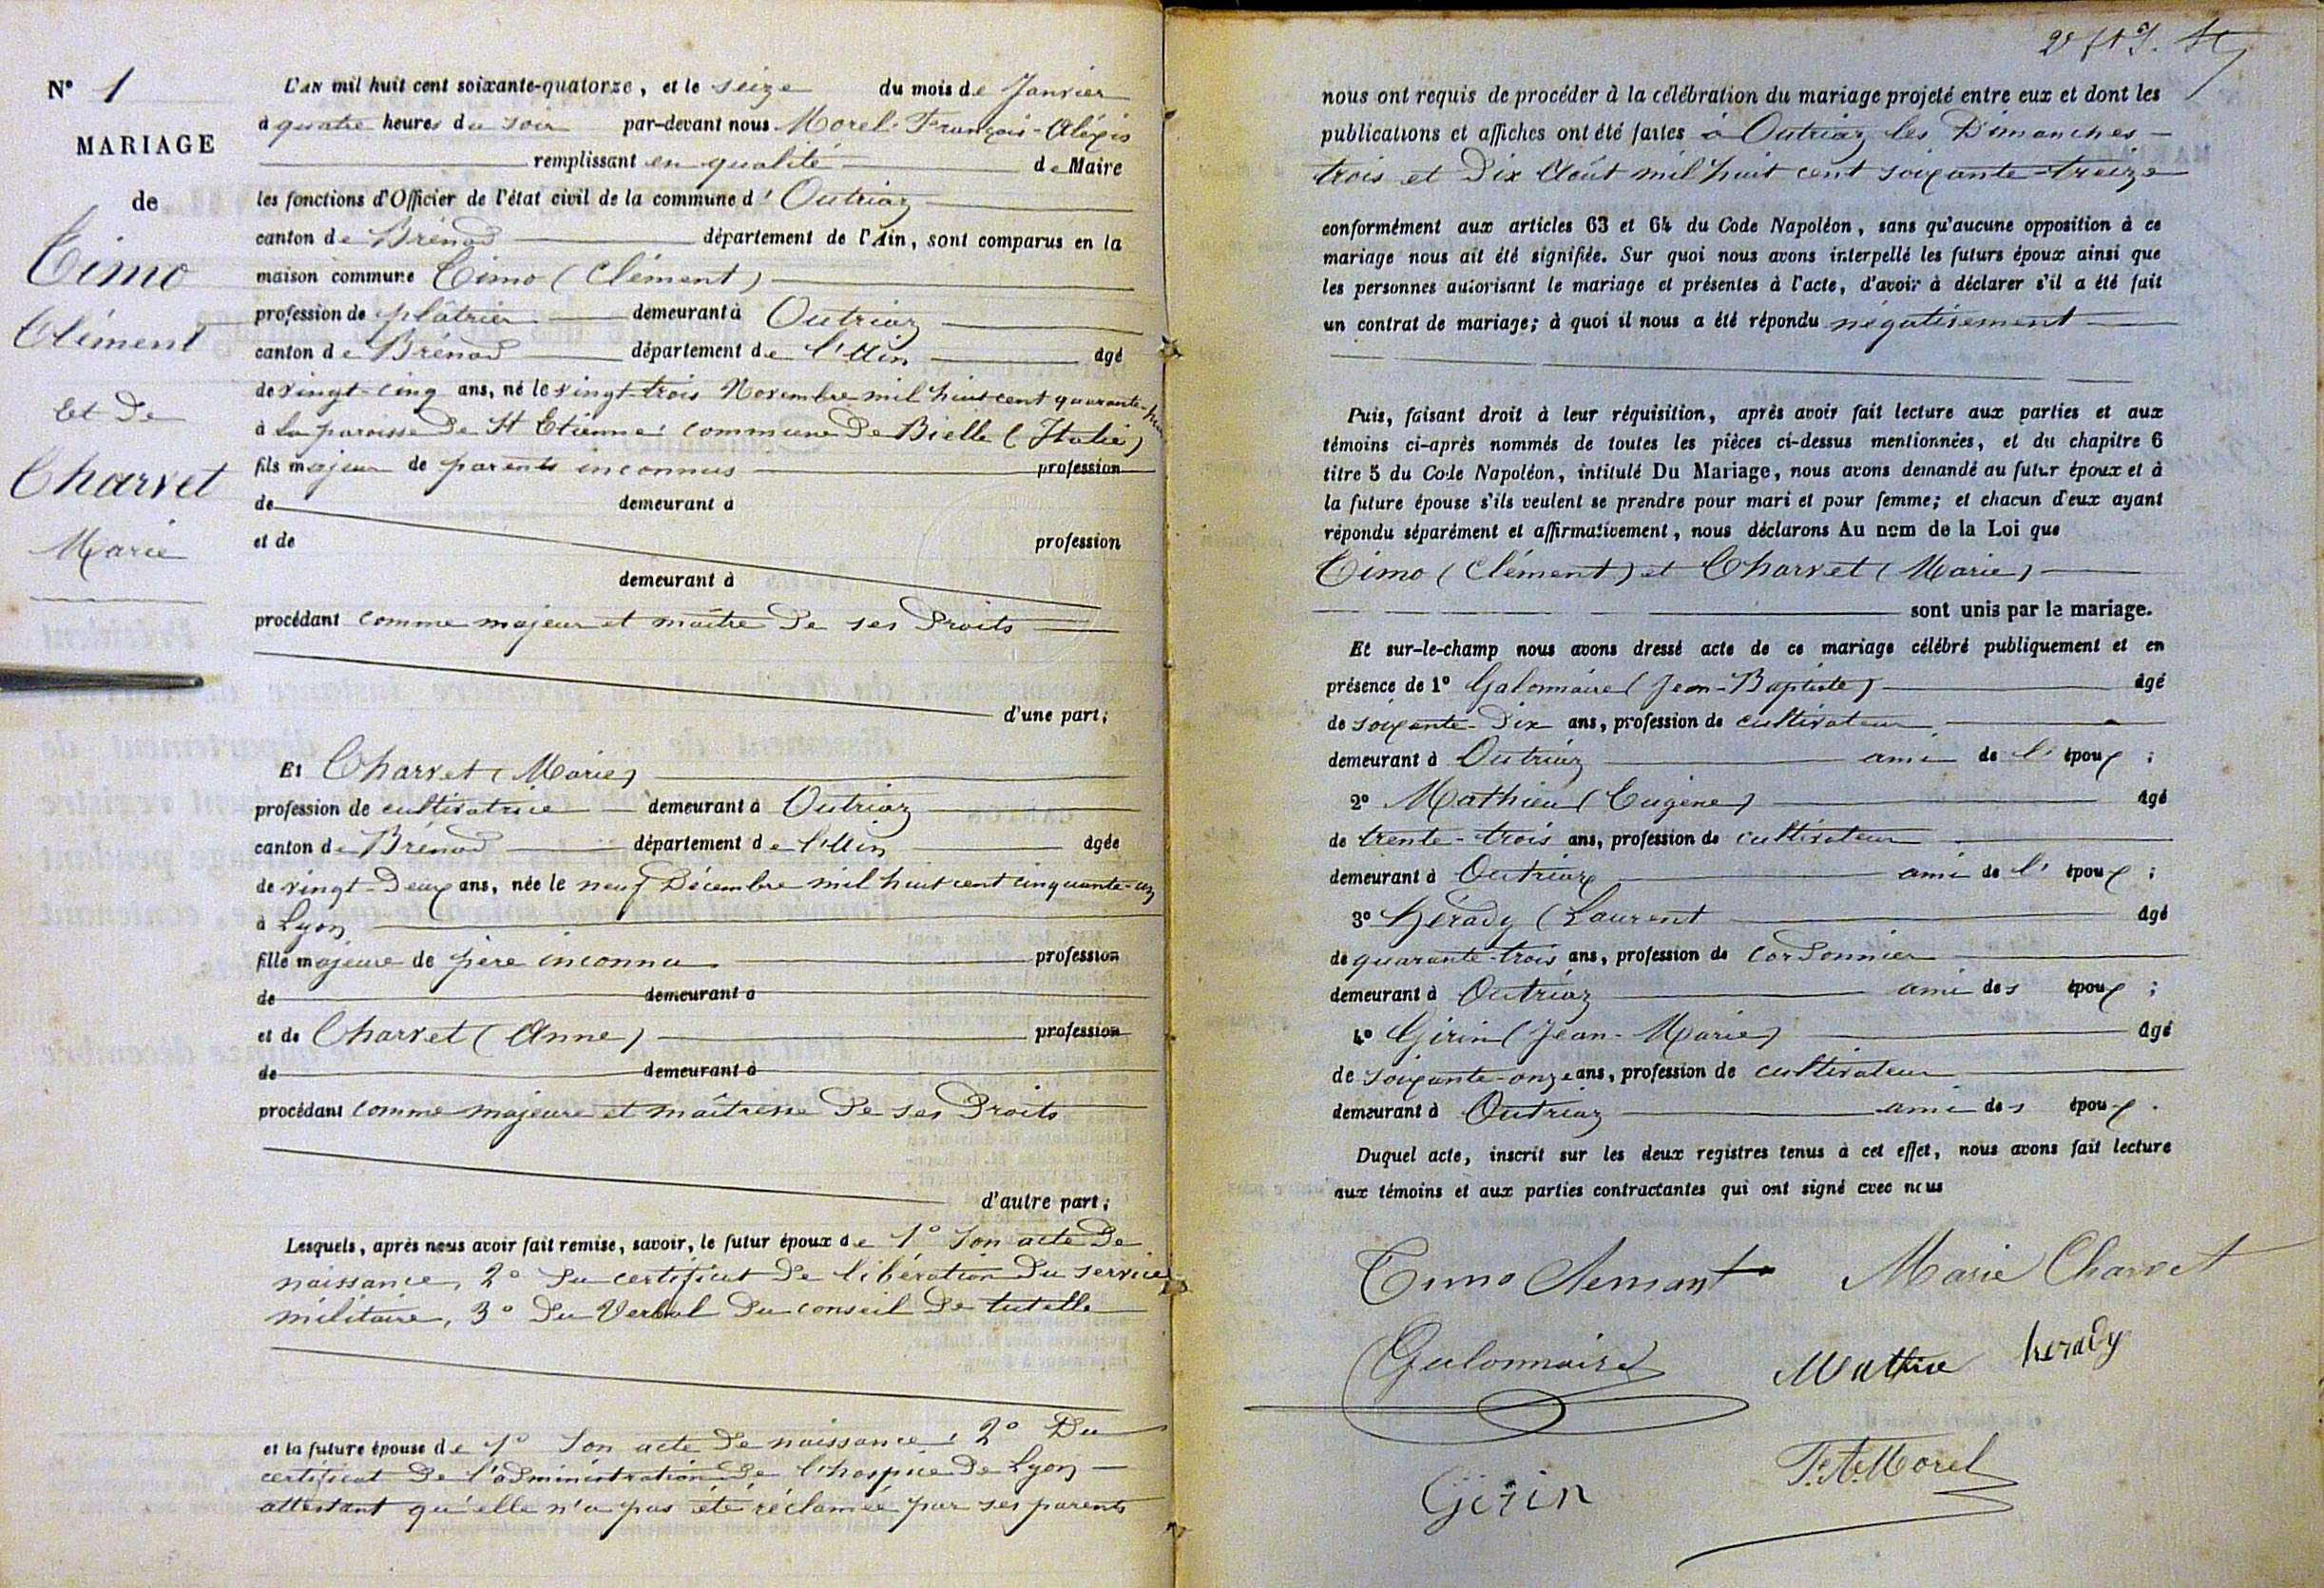 N° 1
MARIAGE
de
Timo
Clément
Et De
Charvet
Marie
L'AN mil huit cent soixante-quatorze, et le seize du mois de Janvier
à quatre heures du soir par-devant nous Morel François-Alexis
remplissant en qualité de Maire
les fonctions d'Officier de l'état civil de la commune d' Outriaz
canton de Brénod département de l'Ain, sont comparus en la
maison commune Timo (Clément)
profession de plâtrier demeurant à Outriaz
canton de Brénod département de l'Ain âgé
de vingt-cinq ans, né le vingt-trois Novembre mil huit cent quarante-huit
à La paroisse De St Etienne commune De Bielle (Italie)
fils majeur de parents inconnus profession
de demeurant à
et de profession
demeurant à
procédant comme majeur et maître De ses Droits
d'une part;
Et Charvet (Marie)
profession de cultivatrice demeurant à Outriaz
canton de Brénod département de l'Ain âgée
de vingt-Deux ans, née le neuf Décembre mil huit cent cinquante-un
à Lyon
fille majeure de père inconnu profession
de demeurant à
et de Charvet (Anne) profession
de demeurant à
procédant comme majeure et maîtresse De ses Droits
d'autre part;
Lesquels, après nous avoir fait remise, savoir, le futur époux de 1° Son acte De
naissance, 2° Du certificat De libération Du service
militaire, 3° Du Verbal Du conseil De tutelle
et la future épouse de 1° Son acte De naissance, 2° Du
certificat De l'administration De l'hospice De Lyon
attestant qu'elle n'a pas été réclamée par ses parents
nous ont requis de procéder à la célébration du mariage projeté entre eux et dont les
publications et affiches ont été faites à Outriaz les Dimanches
trois et Dix Août mil huit cent soixante-treize
conformément aux articles 63 et 64 du Code Napoléon, sans qu'aucune opposition à ce
mariage nous ait été signifiée. Sur quoi nous avons interpellé les futurs époux ainsi que
les personnes autorisant le mariage et présentes à l'acte, d'avoir à déclarer s'il a été fait
un contrat de mariage; à quoi il nous a été répondu négativement
Puis, faisant droit à leur réquisition, après avoir fait lecture aux parties et aux
témoins ci-après nommés de toutes les pièces ci-dessus mentionnées, et du chapitre 6
titre 5 du Code Napoléon, intitulé Du Mariage, nous avons demandé au futur époux et à
la future épouse s'ils veulent se prendre pour mari et pour femme; et chacun d'eux ayant
répondu séparément et affirmativement, nous déclarons Au nom de la Loi que
Timo (Clément) et Charvet (Marie)
sont unis par le mariage.
Et sur-le-champ nous avons dressé acte de ce mariage célébré publiquement et en
présence de 1° Galonnaire (Jean-Baptiste) âgé
de soixante-Dix ans, profession de cultivateur
demeurant à Outriaz ami de l' époux;
2° Mathieu (Eugène) âgé
de trente-trois ans, profession de cultivateur
demeurant à Outriaz ami de l' époux;
3° Hérady (Laurent âgé
de quarante-trois ans, profession de corDonnier
demeurant à Outriaz ami des époux;
4° Girin (Jean-Marie) âgé
de soixante-onze ans, profession de cultivateur
demeurant à Outriaz ami des époux.
Duquel acte, inscrit sur les deux registres tenus à cet effet, nous avons fait lecture
aux témoins et aux parties contractantes qui ont signé avec nous
Timo Clemant Marie Charvet
Galonnaire Mathieu herady
Girin F. A. Morel